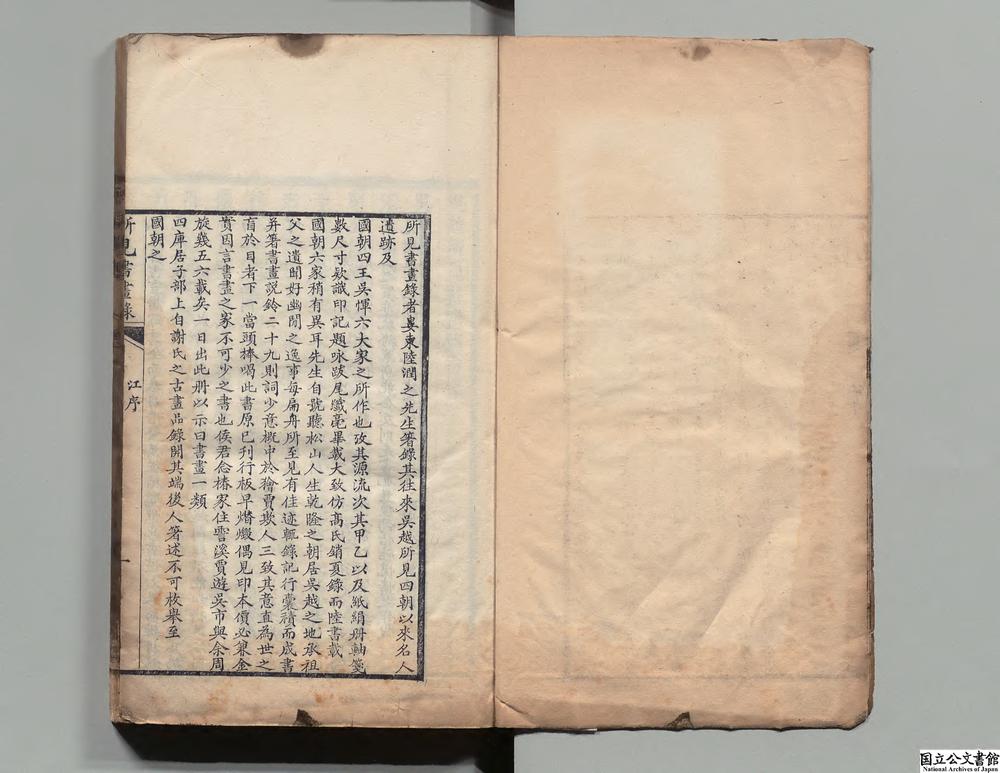 所見書畫錄者婁東陸潤之先生箸錄其往來吳越所見四朝以來名人
遺跡及
國朝四王吳惲六大家之所作也攷其源流次其甲乙以及紙絹册軸箋
數尺寸欵識印記題咏跋尾纖毫畢載大致仿高氏銷夏錄而陸書載
國朝六家稍有異耳先生自號聽松山人生乾隆之朝居吳越之地承祖
父之遺聞好幽閒之逸事每扁舟所至見有佳迹輒錄記行囊積而成書
并箸書畫說鈴二十九則詞少意概中於獪賈欺人三致其意直為世之
盲於目者下一當頭棒喝此書原已刊行板早燬偶見印本價必兼金
貰因言書畫之家不可少之書也侯君念椿家住霅溪賈遊吳市與余周
旋幾五六載矣一日出此册以示曰書畫一類
四庫居子部上自謝氏之古畫品錄開其端後人箸述不可枚舉至
國朝之
所見書畫錄
江序
一
国立公文書館
National Archives of Japan